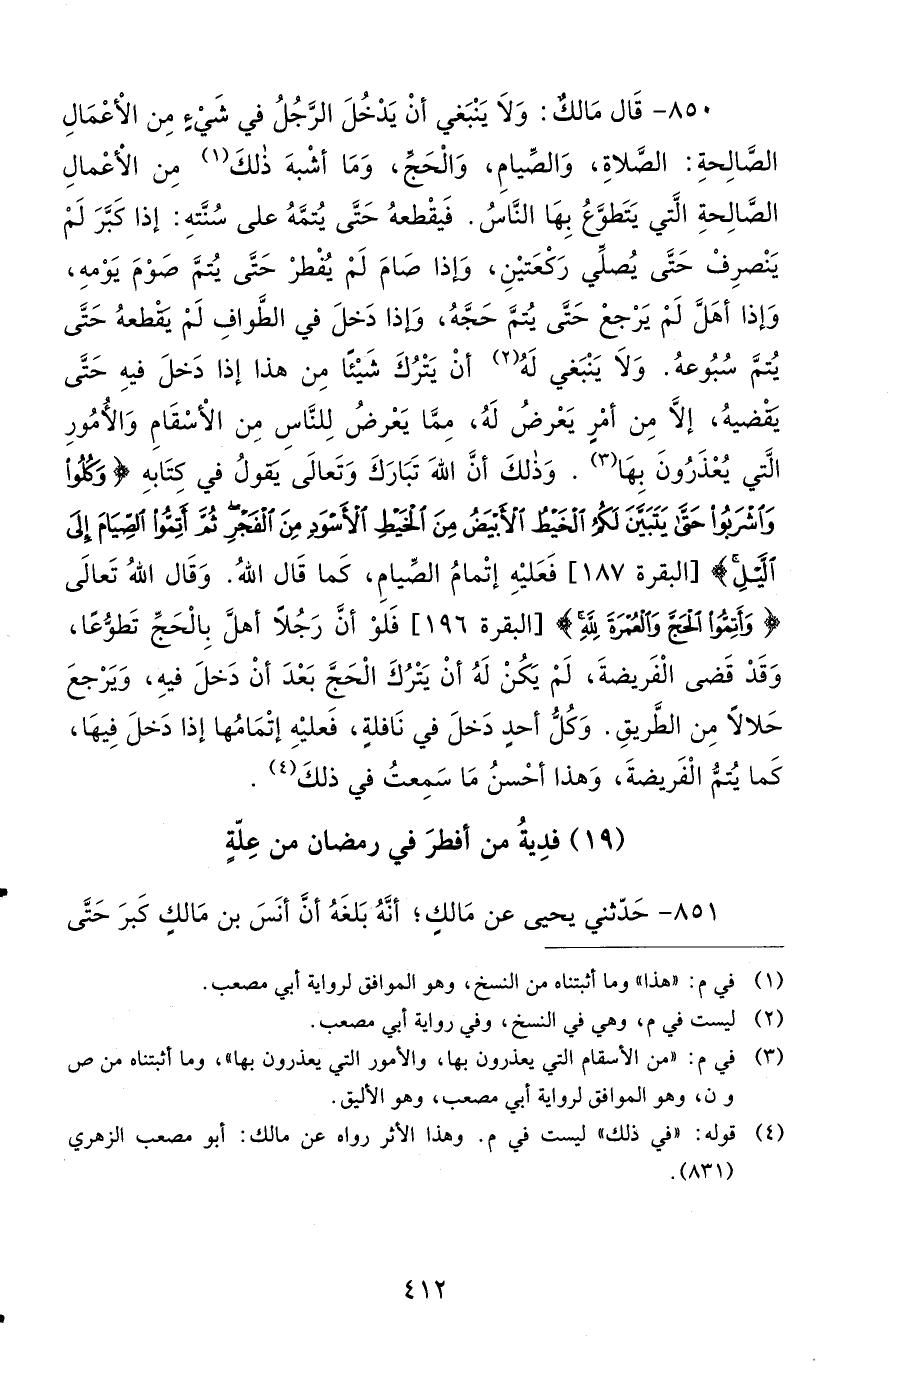 ٨٥٠- قَال مَالكٌ: وَلاَ يَنْبَغي أنْ يَدْخُلَ الرَّجُلُ في شَيْءٍ مِن الْأعْمَالِ
الصَّالِحةِ: الصَّلاةِ، وَالصِّيامِ، وَالْحَجِّ، وَمَا أشْبهَ ذٰلكَ(١) مِن الْأعْمالِ
الصَّالِحةِ الَّتي يَتَطوَّعُ بِهَا النَّاسُ. فَيقْطعهُ حَتَّى يُتمَّهُ على سُنَّتهِ: إذا كبَّرَ لَمْ
يَنْصرِفْ حَتَّى يُصلِّي رَكْعَتيْنِ، وَإذا صَامَ لَمْ يُفْطرْ حَتَّى يُتمَّ صَوْمَ يَوْمهِ،
وَإذا أهَلَّ لَمْ يَرْجعْ حَتَّى يُتمَّ حَجَّهُ، وَإذا دَخلَ في الطَّوافِ لَمْ يَقْطعهُ حَتَّى
يُتمَّ سُبُوعهُ. وَلاَ يَنْبَغي لَهُ(٢) أنْ يَتْرُكَ شَيْئًا مِن هذا إذا دَخلَ فيهِ حَتَّى
يَقْضيهُ، إلاَّ مِن أمْرٍ يَعْرضُ لَهُ، مِمَّا يَعْرضُ لِلنَّاسِ مِن الْأسْقَامِ وَالْأُمُورِ
الَّتي يُعْذَرُونَ بِهَا(٣). وَذٰلكَ أنَّ اللهَ تَبَاركَ وَتَعالَى يَقولُ في كِتَابهِ ﴿وَكُلُوا۟
وَٱشْرَبُوا۟ حَتَّىٰ يَتَبَيَّنَ لَكُمُ ٱلْخَيْطُ ٱلْأَبْيَضُ مِنَ ٱلْخَيْطِ ٱلْأَسْوَدِ مِنَ ٱلْفَجْرِ ۖ ثُمَّ أَتِمُّوا۟ ٱلصِّيَامَ إِلَى
ٱلَّيْلِ ۚ﴾ [البقرة ١٨٧] فَعَليْهِ إتْمامُ الصِّيامِ، كَما قَال اللهُ. وَقَال اللهُ تَعالَى
﴿وَأَتِمُّوا۟ ٱلْحَجَّ وَٱلْعُمْرَةَ لِلَّهِ ۚ﴾ [البقرة ١٩٦] فَلَوْ أنَّ رَجُلاً أهلَّ بِالْحَجِّ تَطوُّعًا،
وَقَدْ قَضى الْفَريضةَ، لَمْ يَكُنْ لَهُ أنْ يَتْرُكَ الْحَجَّ بَعْدَ أنْ دَخلَ فيهِ، وَيَرْجعَ
حَلالاً مِن الطَّريقِ. وَكلُّ أحدٍ دَخلَ في نَافلةٍ، فَعليْهِ إتْمَامُها إذا دَخلَ فِيهَا،
كَما يُتمُّ الْفَريضةَ، وَهذا أحْسنُ مَا سَمِعتُ في ذلكَ(٤).
(١٩) فديةُ من أفطرَ في رمضان من عِلّةٍ
٨٥١- حَدّثني يحيى عن مَالكٍ؛ أنَّهُ بَلغَهُ أنَّ أنَسَ بن مَالكٍ كَبرَ حَتَّى
(١) في م: «هذا» وما أثبتناه من النسخ، وهو الموافق لرواية أبي مصعب.
(٢) ليست في م، وهي في النسخ، وفي رواية أبي مصعب.
(٣) في م: «من الأسقام التي يعذرون بها، والأمور التي يعذرون بها»، وما أثبتناه من ص
و ن، وهو الموافق لرواية أبي مصعب، وهو الأليق.
(٤) قوله: «في ذلك» ليست في م. وهذا الأثر رواه عن مالك: أبو مصعب الزهري
(٨٣١).
٤١٢